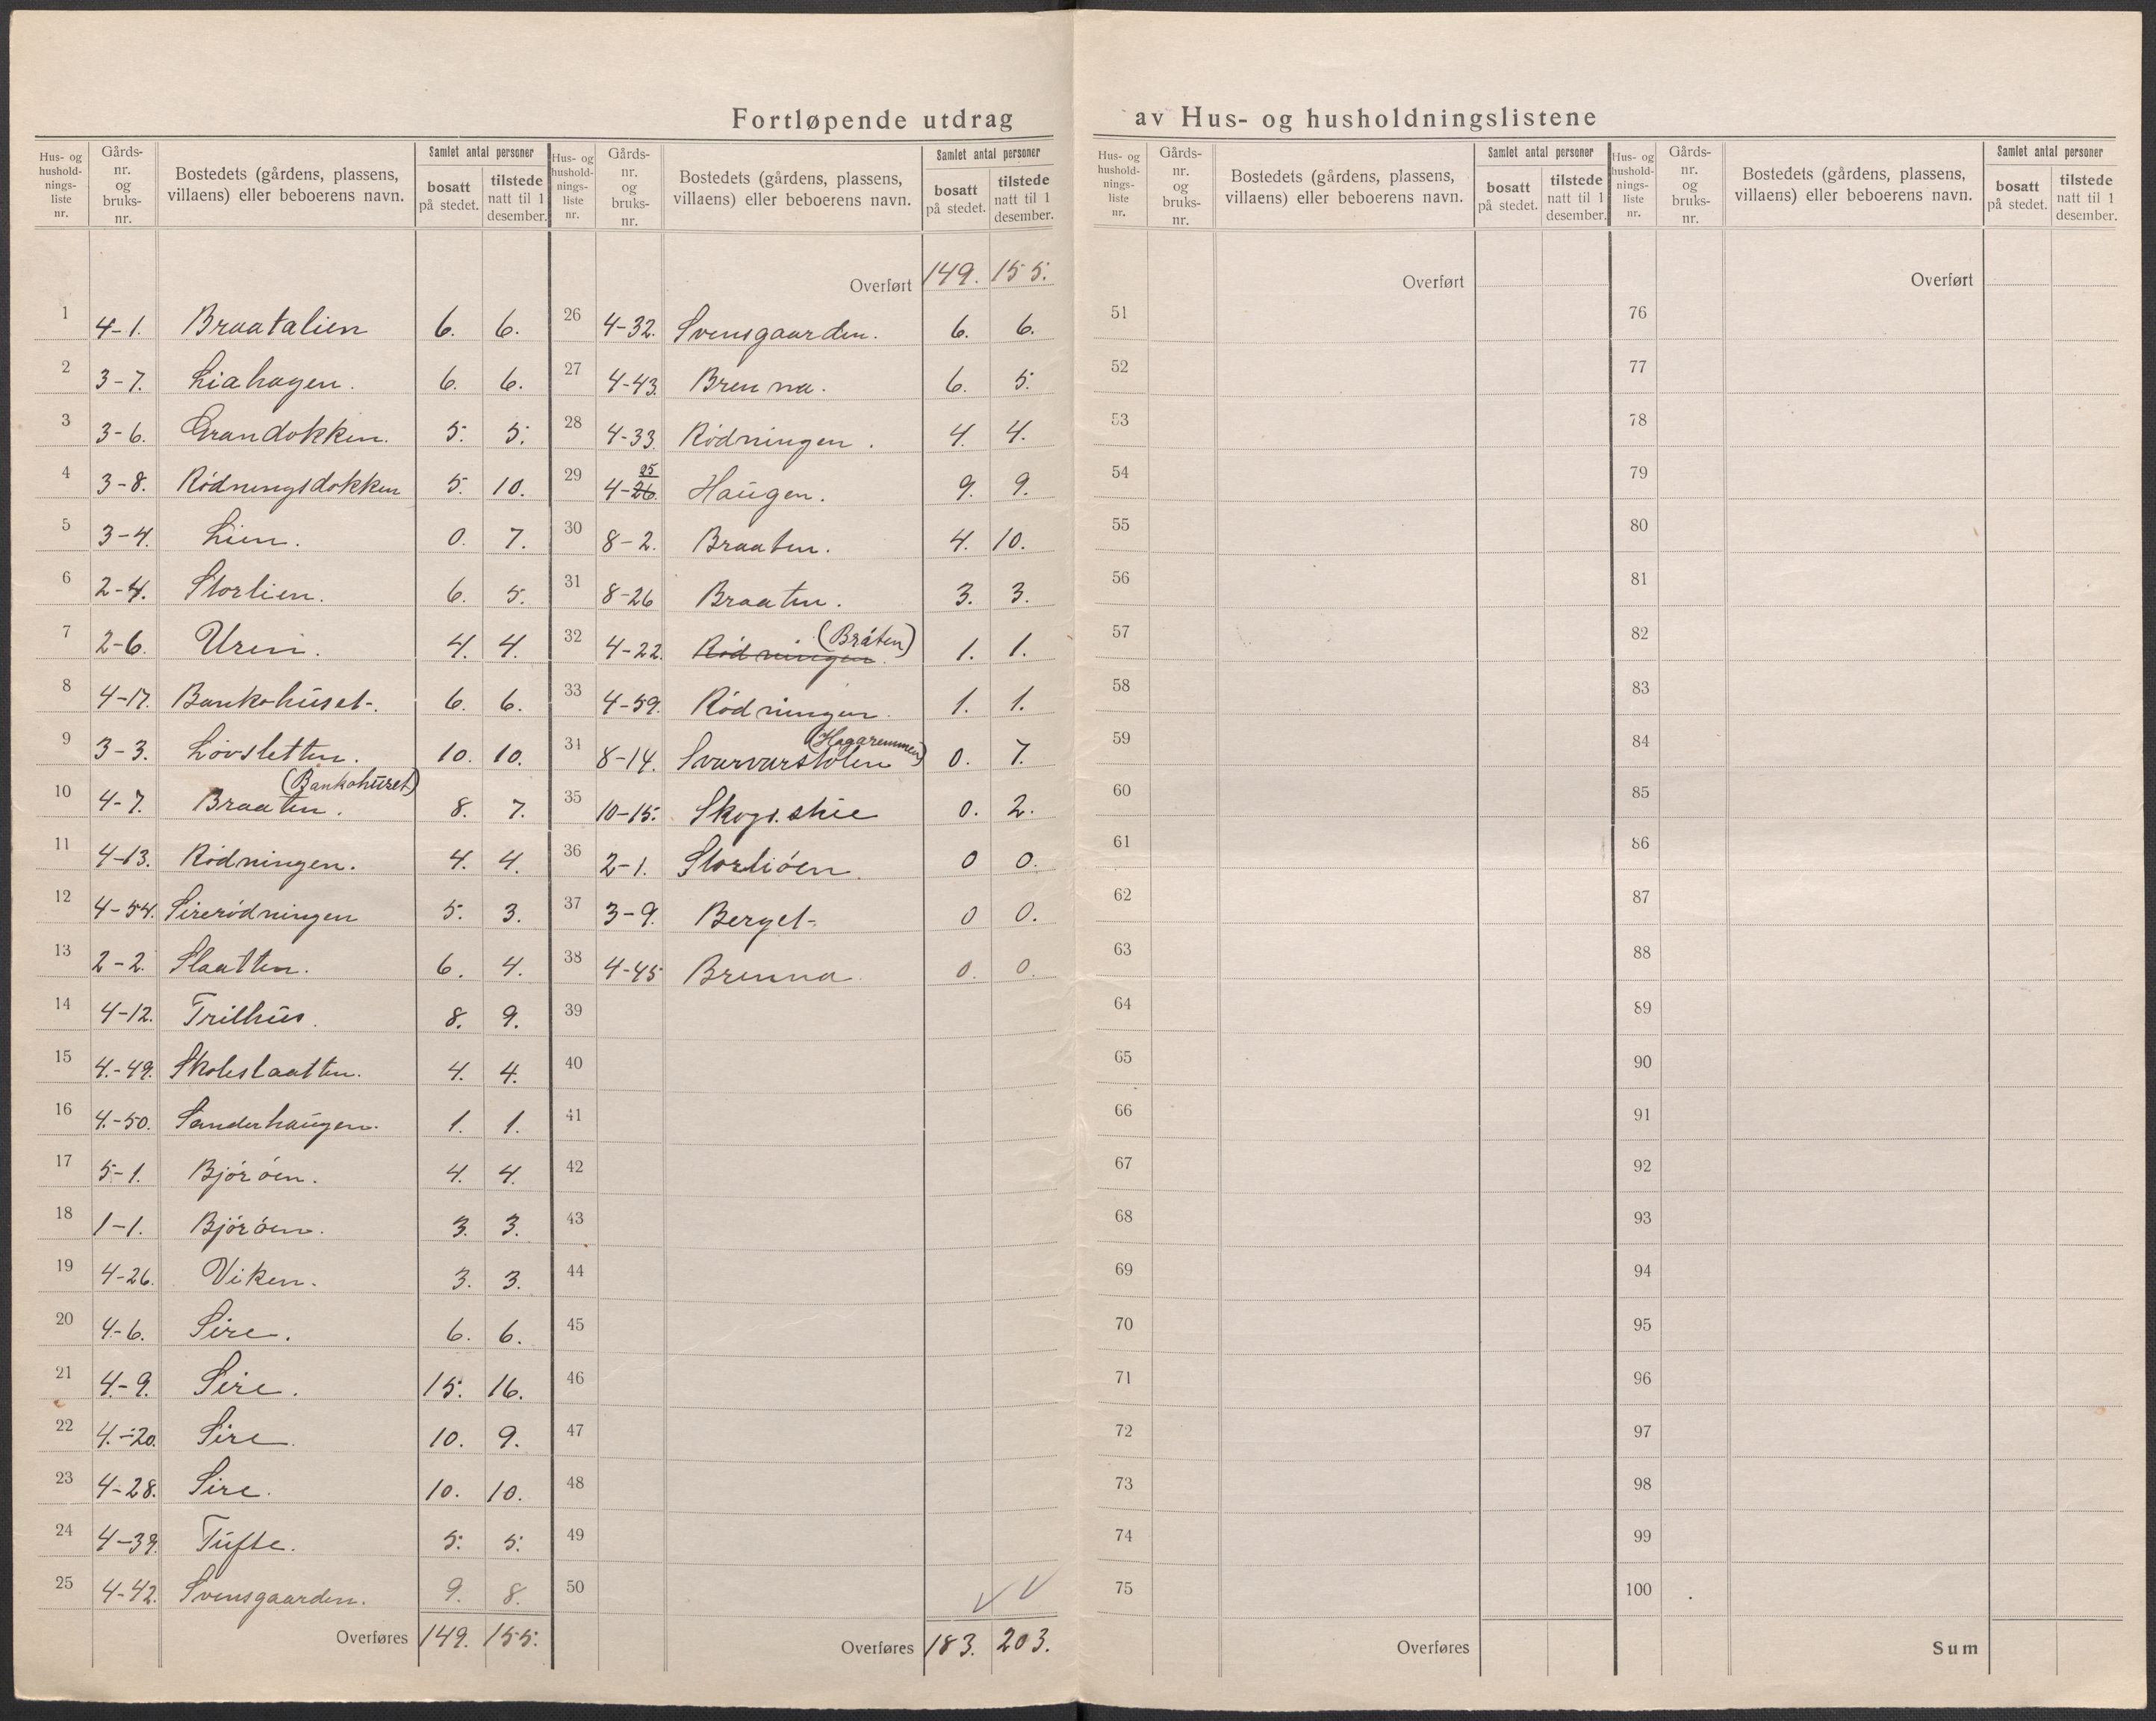 Fortløpende utdrag av Hus- og husholdningslistene
Hus- og hushold-nings-liste nr. Gårds-nr. og bruks-nr. Bostedets (gårdens, plassens, villaens) eller beboerens navn. Samlet antal personer bosatt på stedet. tilstede natt til 1 desember.
1 4-1. Braatalien 6. 6.
2 3-7. Liahagen. 6. 6.
3 3-6. Grandokken. 5. 5.
4 3-8. Rødningsdokken 5. 10.
5 3-4. Lien. 0. 7.
6 2-4. Storlien. 6. 5.
7 2-6. Uren. 4. 4.
8 4-17. Bankohuset. 6. 6.
9 3-3. Løvsletten. 10. 10.
(Bankohuset)
10 4-7. Braaten. 8. 7.
11 4-13. Rødningen. 4. 4.
12 4-54. Sirerødningen 5. 3.
13 2-2. Slaatten. 6. 4.
14 4-12. Trilhus. 8. 9.
15 4-49. Skoleslaatten. 4. 4.
16 4-50. Sanderhaugen. 1. 1.
17 5-1. Bjørøen. 4. 4.
18 1-1. Bjørøen. 3. 3.
19 4-26. Viken. 3. 3.
20 4-6. Sire. 6. 6.
21 4-9. Sire. 15. 16.
22 4-20. Sire. 10. 9.
23 4-28. Sire. 10. 10.
24 4-39. Tufte. 5. 5.
25 4-42. Svensgaarden. 9. 8.
Overføres 149. 155.
Hus- og hushold-nings-liste nr. Gårds-nr. og bruks-nr. Bostedets (gårdens, plassens, villaens) eller beboerens navn. Samlet antal personer bosatt på stedet. tilstede natt til 1 desember.
Overført 149. 155.
26 4-32. Svensgaarden. 6. 6.
27 4-43. Brenna. 6. 5.
28 4-33. Rødningen. 4. 4.
29 4-26. 25 Haugen. 9. 9.
30 8-2. Braaten. 4. 10.
31 8-26 Braaten. 3. 3.
32 4-22. Rødningen. (Bråten) 1. 1.
33 4-59. Rødningen. 1. 1.
34 8-14. Svarvarstølen (Hagaremmen) 0. 7.
35 10-15. Skogs. 0. 2.
36 2-1. Storliøen. 0 0.
37 3-9. Berget. 0 0.
38 4-45 Brenna. 0. 0.
39
40
41
42
43
44
45
46
47
48
49
50
Overføres 183. 203.
Hus- og hushold-nings-liste nr. Gårds-nr. og bruks-nr. Bostedets (gårdens, plassens, villaens) eller beboerens navn. Samlet antal personer bosatt på stedet. tilstede natt til 1 desember.
Overført
51
52
53
54
55
56
57
58
59
60
61
62
63
64
65
66
67
68
69
70
71
72
73
74
75
Overføres
Hus- og hushold-nings-liste nr. Gårds-nr. og bruks-nr. Bostedets (gårdens, plassens, villaens) eller beboerens navn. Samlet antal personer bosatt på stedet. tilstede natt til 1 desember.
Overført
76
77
78
79
80
81
82
83
84
85
86
87
88
89
90
91
92
93
94
95
96
97
98
99
100
Sum